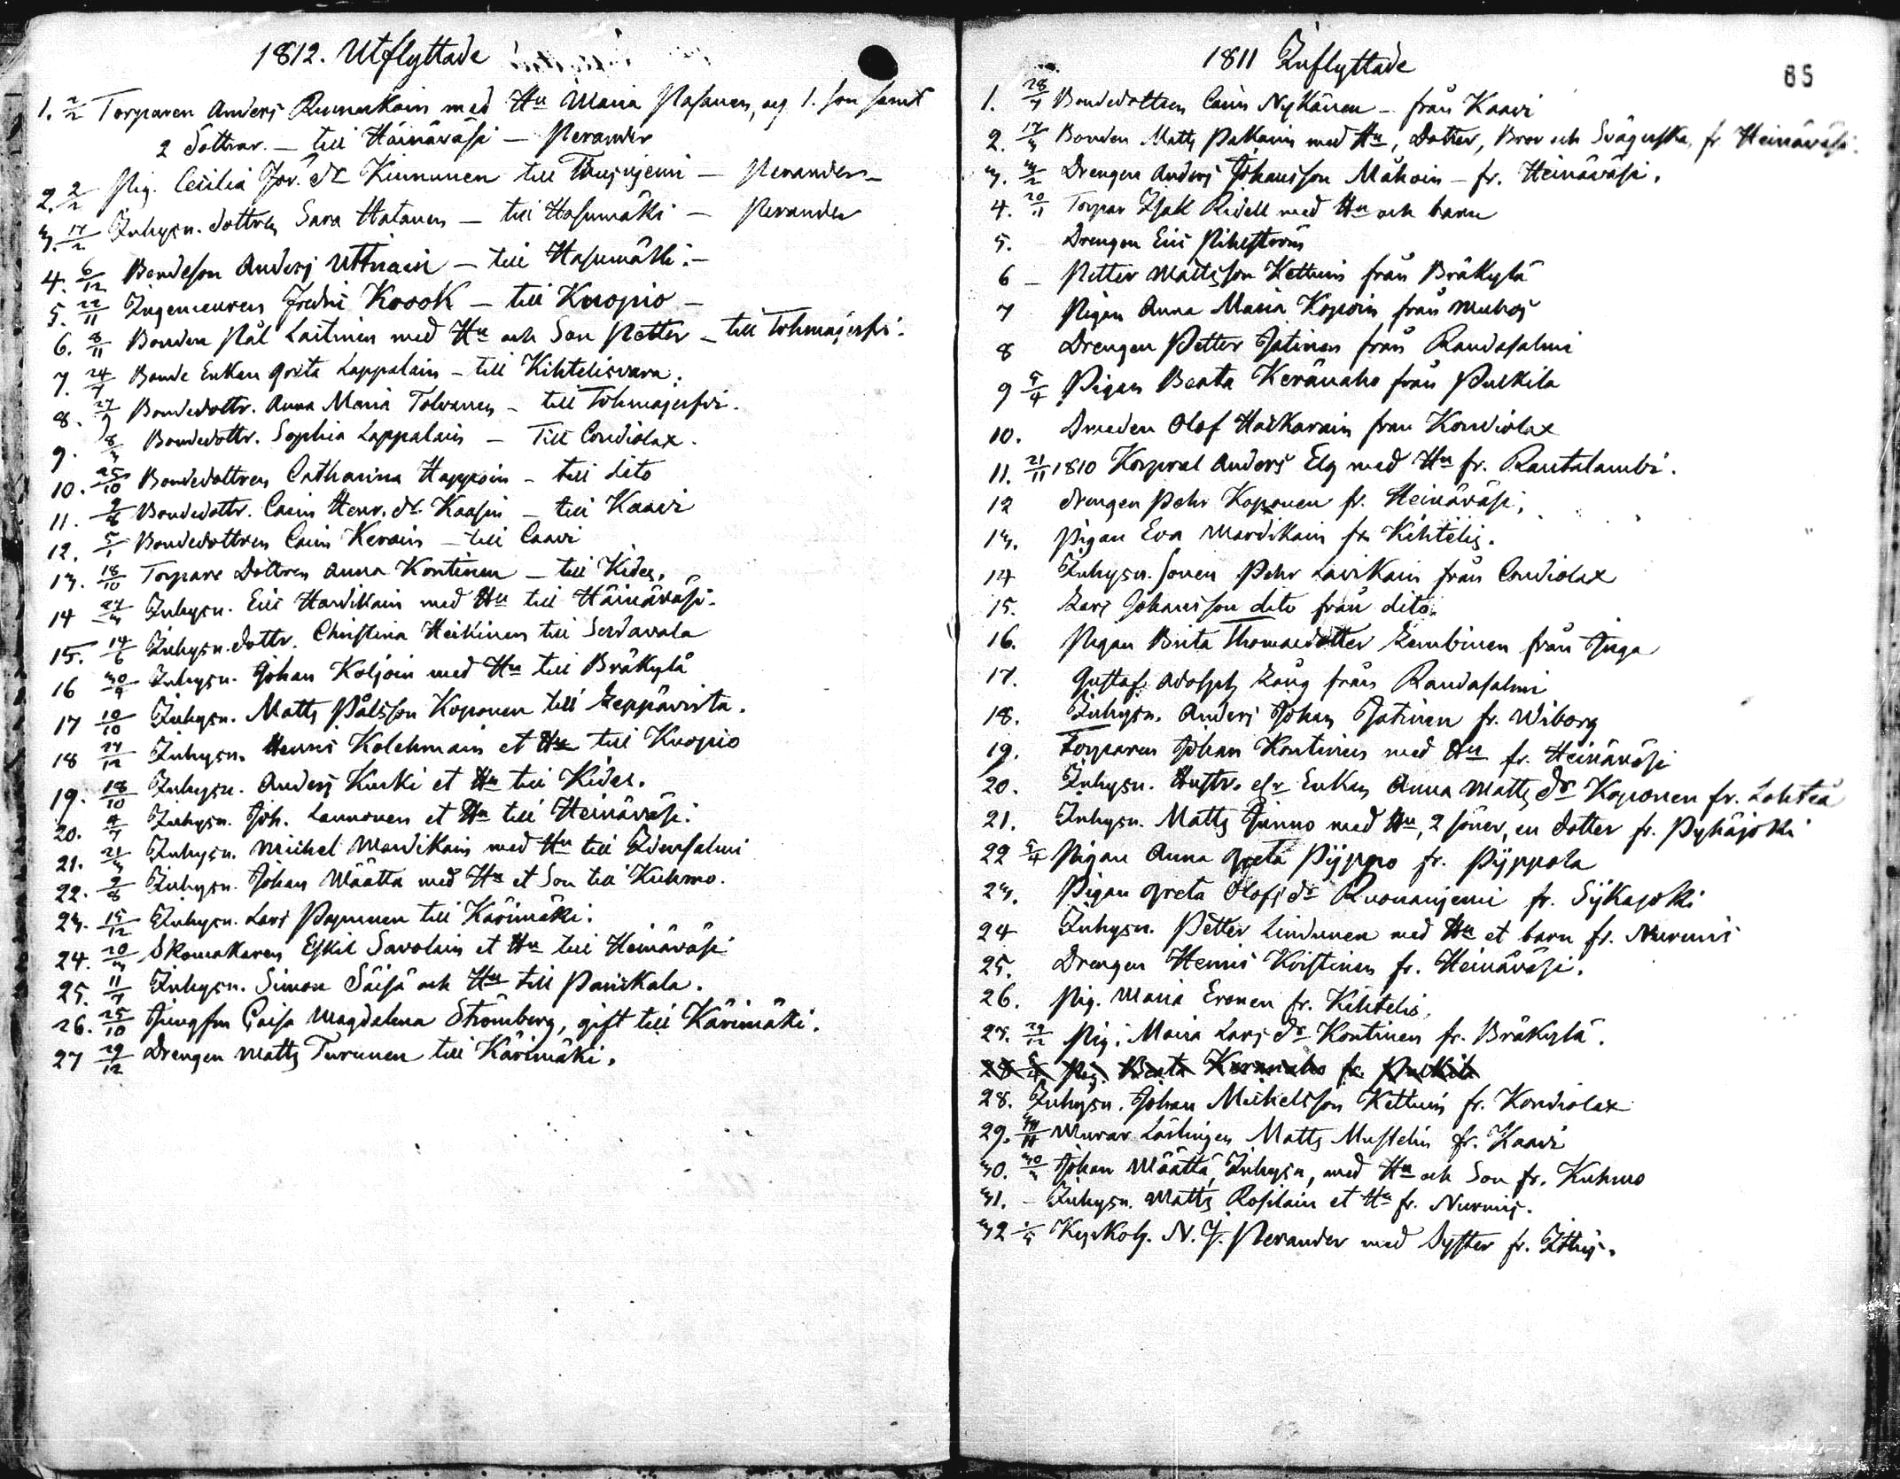 1812. Utflyttade
1. 2/2 Torparen Anders Runnukain med Hu Maria Pasanen, och 1. son samt
2 döttrar. — till Häinäväsi — Perander
2. 2/2 Pig. Cecilia Jör. dr Kinnunen till — Perander —
3. 17/2 Inhysn. dottren Sara Hatanen — till Hasumäki — Perander
4. 6/12 Bondeson Anders Uttriain — till Hasumäki. —
5. 22/11 Ingenieuren Fredric Krook — till Kuopio —
6. 8/11 Bonden Pål Laitinen med Hu och Son Petter — till Tohmajerfvi.
7. 24/7 Bonde Enkan Greta Lappalain — till Kihtelisvara.
8. Bondedottr. Anna Maria Tolvanen — till Tohmajerfvi.
9. 8/3 Bondedottr. Sophia Lappalain — Till Condiolax.
10. 25/10 Bondedottren Catharina Happoin — till dito
11. Bondedottr. Carin Henr. dr Kaasin — till Kaavi
12. 5/1 Bondedottren Carin Kerain — till Caavi
13. 18/10 Torpare Dottren Anna Kontinen — till Kides.
14 27/3 Inhysn. Eric Hardikain med Hu till Häinäväsi.
15. 14/6 Inhysn. dottr. Christina Heikinen till Serdavala
16 30/9 Inhysn. Johan Koljoin med Hu till Bräkylä
17 10/10 Inhysn. Matts Pålsson Koponen till Leppävirta.
18 27/12 Inhysn. Henric Kolehmain et Hu till Kuopio
19. 18/10 Inhysn. Anders Kurki et Hu till Kides.
20. Inhysn. Joh. Lannonen et Hu till Heinäväsi.
21. 21/3 Inhysn. Michel Mardikain med Hu till Idensalmi
22. 2/8 Inhysn. Johan Määtta med Hu et Son till Kuhmo.
23. 15/12 Inhysn. Lars Papunen till Kärimäki.
24. 20/3 Skomakaren Eskil Savolain et Hu till Heinäväsi
25. 11/7 Inhysn. Simon Säisä och Hu till Parikala.
26. 25/10 Jungfru Caisa Magdalena Strömberg, gift till Kärimäki.
27 29/12 Drengen Matts Turunen till Kärimäki.
1811 Inflyttade
85
1. 28/7 Bondedottren Carin Nykänen — från Kaavi
2. 17/3 Bonden Matts Pakain med Hu, Dotter, Bror och Svägerska, fr Heinäväsi.
3. 3/2 Drengen Anders Johansson Måhoin — fr. Heinäväsi.
4. 20/11 Torpar Isak Ridell med Hu och barn
5. Drengen Eric Pihlström
6 — Petter Mattsson Kettuin från Bräkylä
7 Pigan Anna Maria Kopoin från Muhos
8 Drengen Petter Jatinen från Randasalmi
9 5/4 Pigan Beata Keränaho från Pulkila
10. Drengen Olof Hackarain från Kondiolax
11. 21/11 1810 Korporal Anders Elg med Hu fr. Rautalambi.
12 drengen Pehr Koponen fr. Heinäväsi.
13. Pigan Eva Mardikain fr Kihtelis.
14 Inhysn. Sonen Pehr Lavikain från Condiolax
15. Lars Johansson dito från dito.
16. Pigan Brita Thomaedotter Lembinen från Inga
17. Gustaf Adolph Lång från Randasalmi
18. Inhysn. Anders Johan Jatinen fr. Wiborg
19. Torparen Johan Kontinen med Hu fr. Heinäväsi
20. Inhysn. Hustr. elr Enkan Anna Matts dr Koponen fr. Lohteå
21. Inhysn. Matts Junno med Hu, 2 söner, en dotter fr. Pyhäjoki
22 5/4 Pigan Anna Greta Pijppo fr. Pijppola
23. Pigan Greta Olofs dr Ruonanjemi fr. Sijkajoki
24 Inhysn. Petter Lindunen med Hu et barn fr. Nurmis
25. Drengen Henric Kristinen fr. Heinäväsi.
26. Pig. Maria Eronen fr. Kihtelis.
27. 29/12 Pig. Maria Lars dr Kontinen fr. Bräkylä.
28 5/4 Pig. Beata Keränaho fr. Pulkila
28. Inhysn. Johan Michelsson Kettuin fr. Kondiolax
29. Murar Lärlingen Matts Mustelin fr. Kaavi
30. 30/3 Johan Määttä, Inhysn, med Hu och Son fr. Kuhmo
31. — Inhysn. Matts Rosilain et Hu fr. Nurmis.
32 1/5 Kyrkoh. N. J. Perander med Syster fr. Ithis.